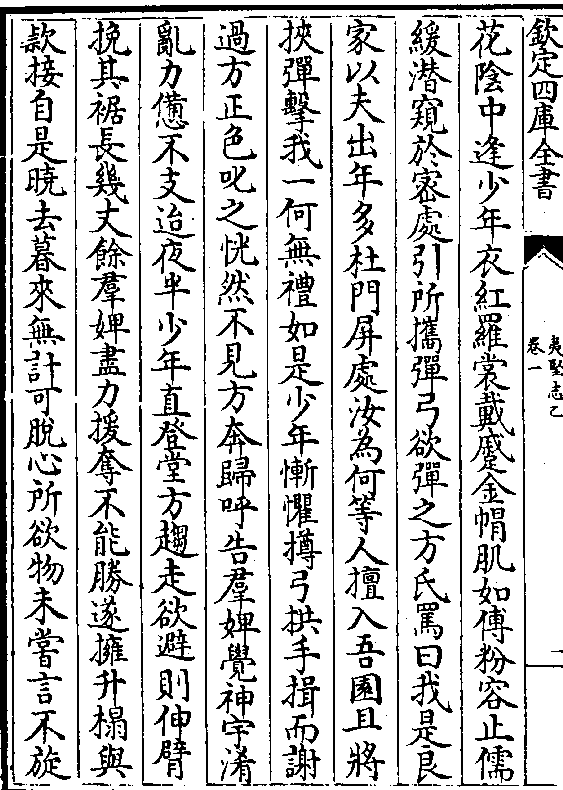 欽定四庫全書
夷堅志乙
卷一
一
花陰中逢少年衣紅羅裳戴蹙金帽肌如傅粉容止儒
緩潛窺於密處引所攜彈弓欲彈之方氏罵曰我是良
家以夫出年多杜門屏處汝為何等人擅入吾園且將
挾彈擊我一何無禮如是少年慚懼摶弓拱手揖而謝
過方正色叱之恍然不見方奔歸呼告羣婢覺神宇淆
亂力憊不支迨夜半少年直登堂方趨走欲避則伸臂
挽其裾長幾丈餘羣婢盡力援奪不能勝遂擁升榻與
款接自是曉去暮來無計可脫心所欲物未嘗言不旋